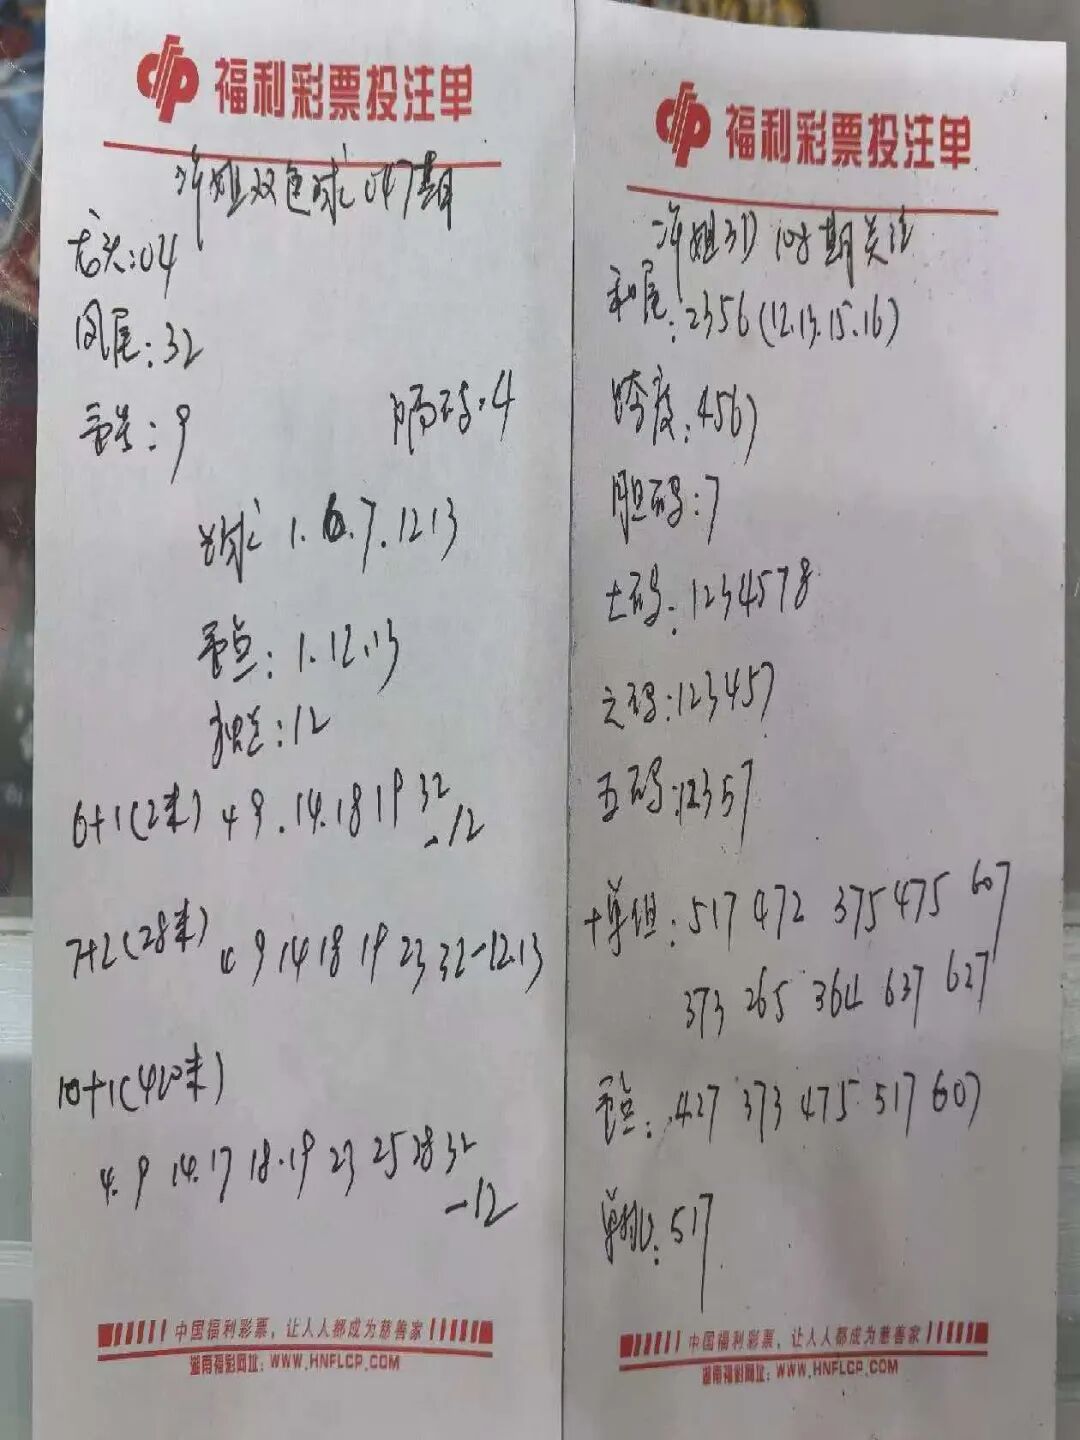 福利彩票投注单
海姐双色球047期
龙头:04
凤尾:32
重号:9 隔码:4
兰球 1.6.7.12 13
重点:1.12.13
独兰:12
6+1(2米) 4 9.14.18 19 32-12
7+2(28米) 4 9 14 18 19 23 32-12.13
10+1(420米)
4.9 14.17 18.19 23 25 28 32-12
中国福利彩票，让人人都成为慈善家
湖南福彩网址：WWW.HNFLCP.COM
福利彩票投注单
海姐3D 108期关注
和尾:2356(12.13.15.16)
跨度:4567
胆码:7
七码:1234578
六码:123457
五码:12357
十单组:517 472 375 475 607
373 265 364 637 627
重点:427 373 475 517 607
单挑:517
中国福利彩票，让人人都成为慈善家
湖南福彩网址：WWW.HNFLCP.COM